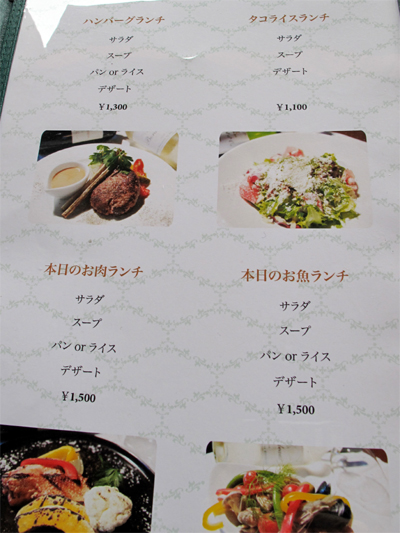 ハンバーグランチ
サラダ
スープ
パン or ライス
デザート
¥1,300
タコライスランチ
サラダ
スープ
デザート
¥1,100
本日のお肉ランチ
サラダ
スープ
パン or ライス
デザート
¥1,500
本日のお魚ランチ
サラダ
スープ
パン or ライス
デザート
¥1,500